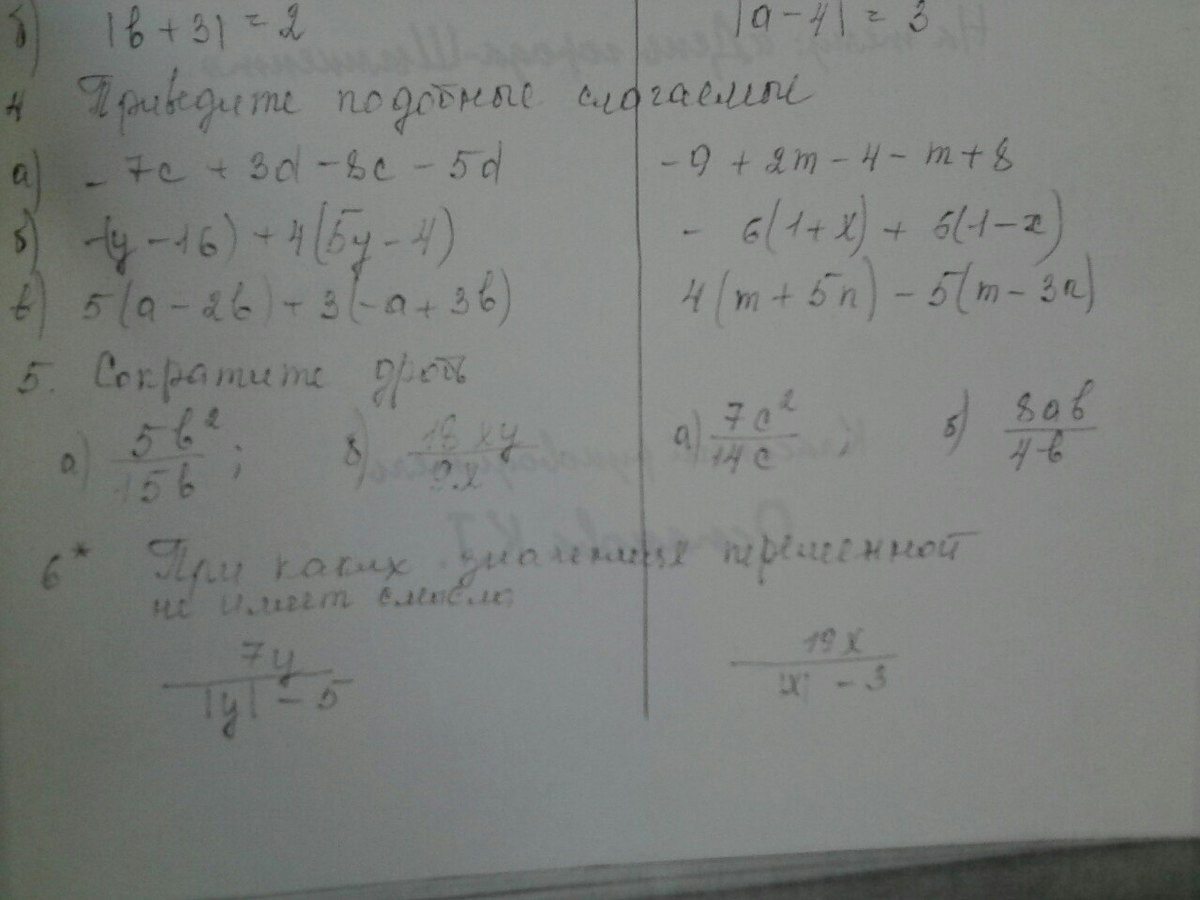 б) |b + 3| = 2 |a - 4| = 3
4 Приведите подобные слагаемые
а) - 7c + 3d - 8c - 5d - 9 + 2m - 4 - m + 8
б) -(y - 16) + 4(5y - 4) - 6(1 + x) + 5(1 - x)
в) 5(a - 2b) + 3(-a + 3b) 4(m + 5n) - 5(m - 3n)
5. Сократите дробь
а) 5b²/15b ; б) 18xy/9x а) 7c²/14c б) 8ab/4b
6* При каких значениях переменной
не имеет смысла:
7y/|y| - 5 19x/|x| - 3